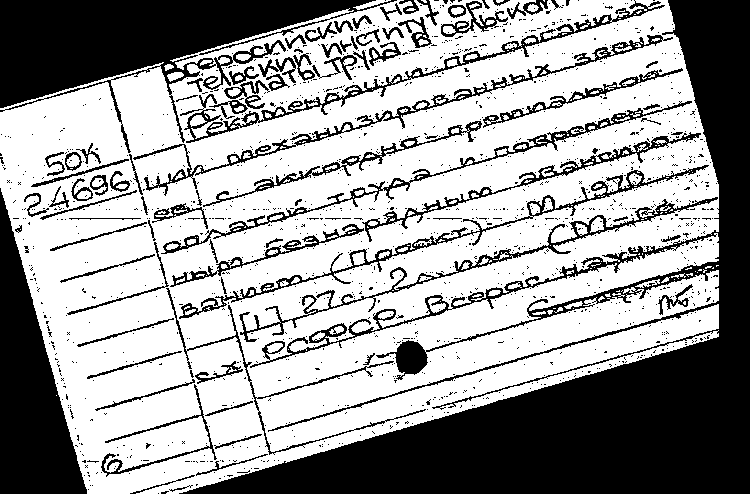 Всеросийский нау
тельский институт орга
и оплаты труда в сельском
стве
Рекомендации по организа-
50К
24696
ции механизированных звень-
ев с аккордно-премиальной
оплатой труда и повремен-
ным безнарядным авансиро-
ванием (Проект) М, 1970
[1], 27с; 2 л. илл (М-во
с.х. РСФСР. Всерос. науч.-
МБ
6